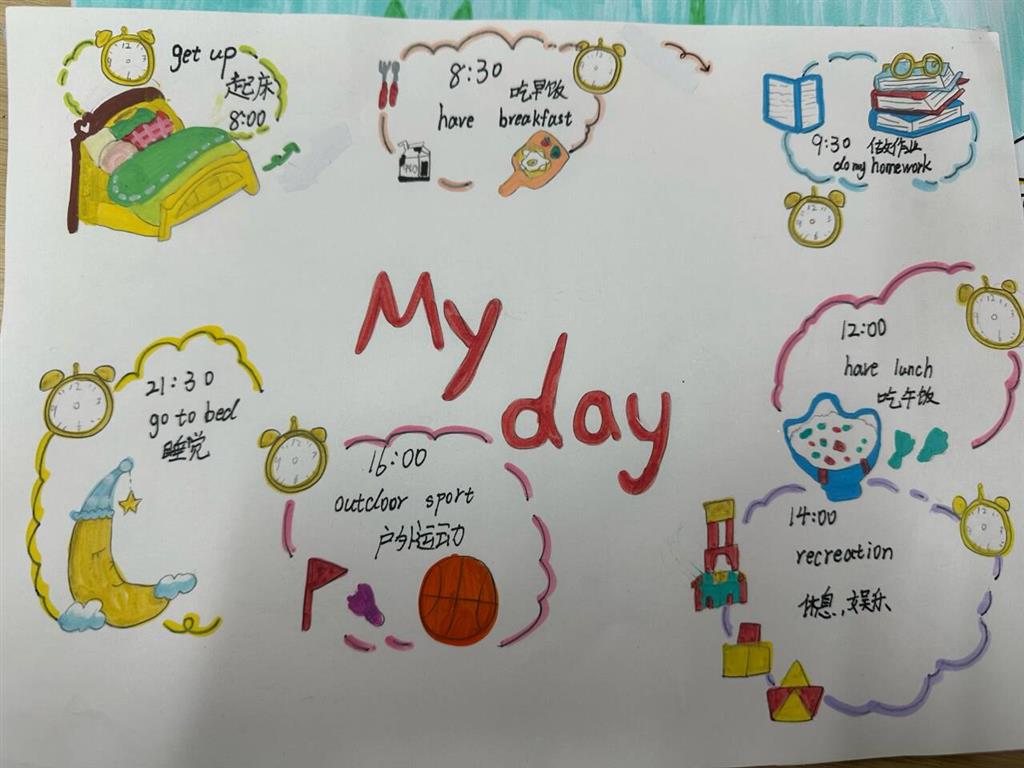 get up
起床
8:00
8:30
吃早饭
have breakfast
9:30 做作业
do my homework
My
day
12:00
have lunch
吃午饭
21:30
go to bed
睡觉
16:00
outdoor sport
户外运动
14:00
recreation
休息,娱乐